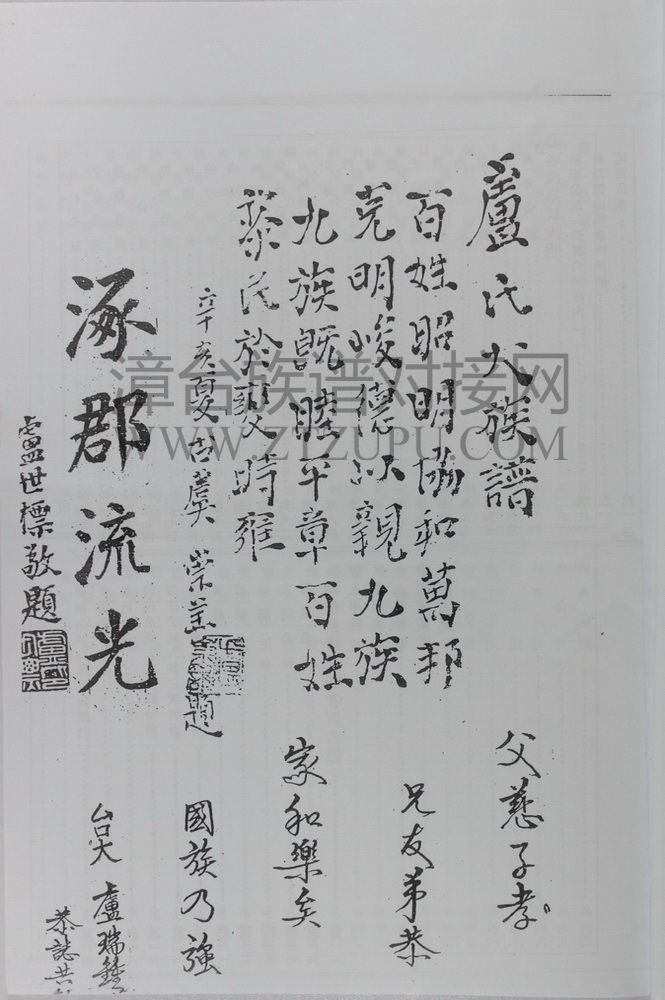 盧氏大族譜
百姓昭明協和萬邦
克明峻德以親九族
九族既睦平章百姓
黎民於變時雍
辛亥夏古虞
題
涿郡流光
盧世標敬題
父慈子孝
兄友弟恭
家和樂矣
國族乃強
台大 盧瑞鍾
恭誌共
漳台族谱对接网
WWW.ZTZUPU.COM